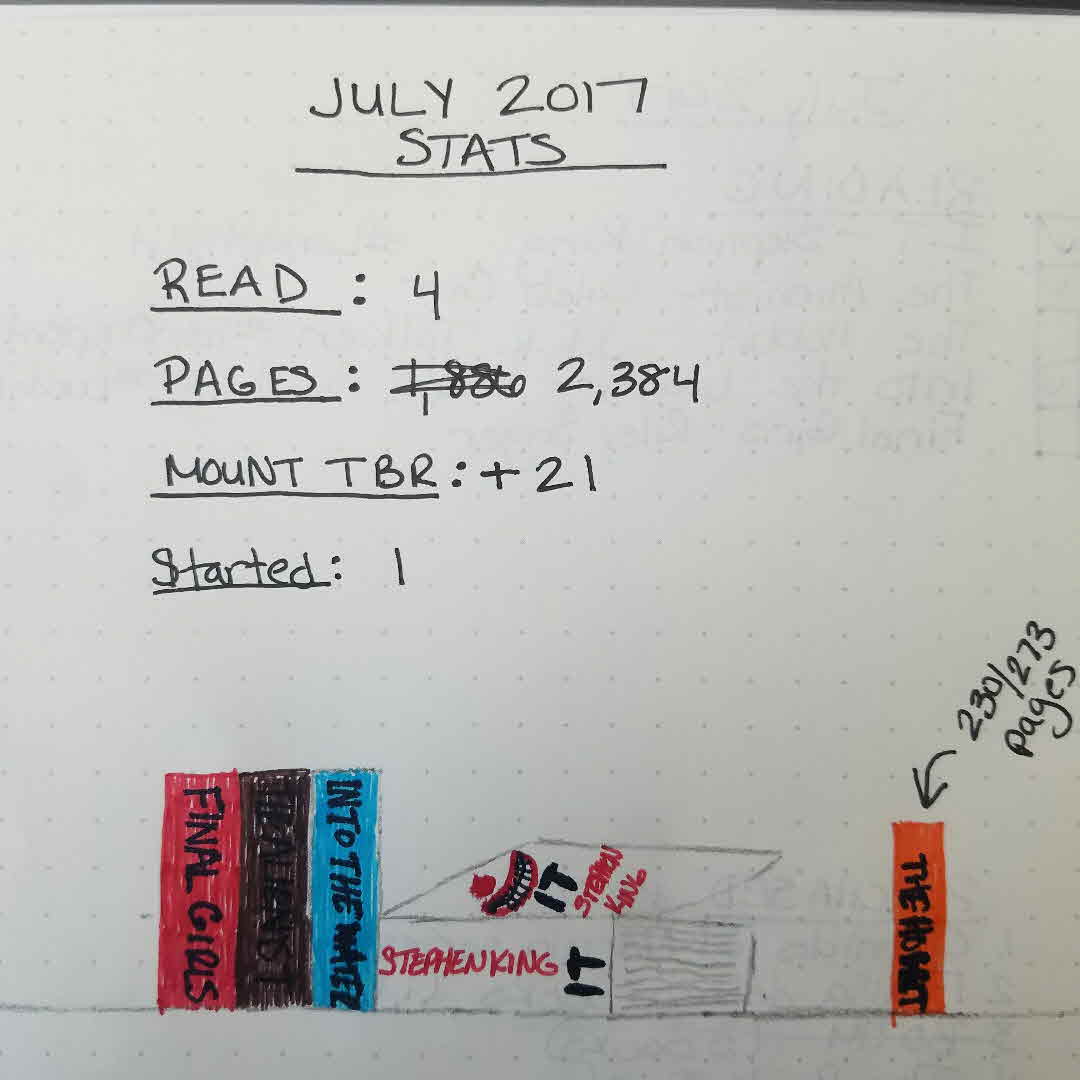 JULY 2017
STATS
READ : 4
PAGES : 1,886 2,384
MOUNT TBR : + 21
Started : 1
230/273
pages
FINAL GIRLS
INTO THE WATER
IT
STEPHEN
KING
STEPHEN KING IT
THE HOBBIT